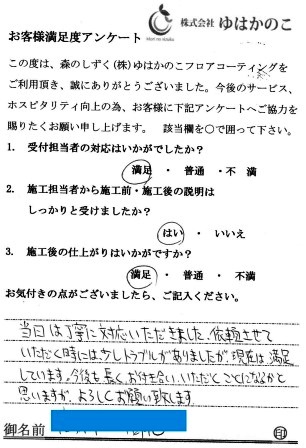 株式会社 ゆはかのこ
お客様満足度アンケート
この度は、森のしずく(株)ゆはかのこフロアコーティングを
ご利用頂き、誠にありがとうございました。今後のサービス、
ホスピタリティ向上の為、お客様に下記アンケートへご協力を
賜りたくお願い申し上げます。 該当欄を○で囲って下さい。
1. 受付担当者の対応はいかがでしたか?
満足 ・ 普通 ・ 不 満
2. 施工担当者から施工前・施工後の説明は
しっかりと受けましたか?
はい ・ いいえ
3. 施工後の仕上がりはいかがですか?
満足 ・ 普通 ・ 不満
お気付きの点がございましたら、ご記入ください。
当日は丁寧に対応いただきました。依頼させて
いただく時には少しトラブルがありましたが、現在は満足
しています。今後も長くお付き合いいただくことになるかと
思いますが、よろしくお願い致します
御名前 印